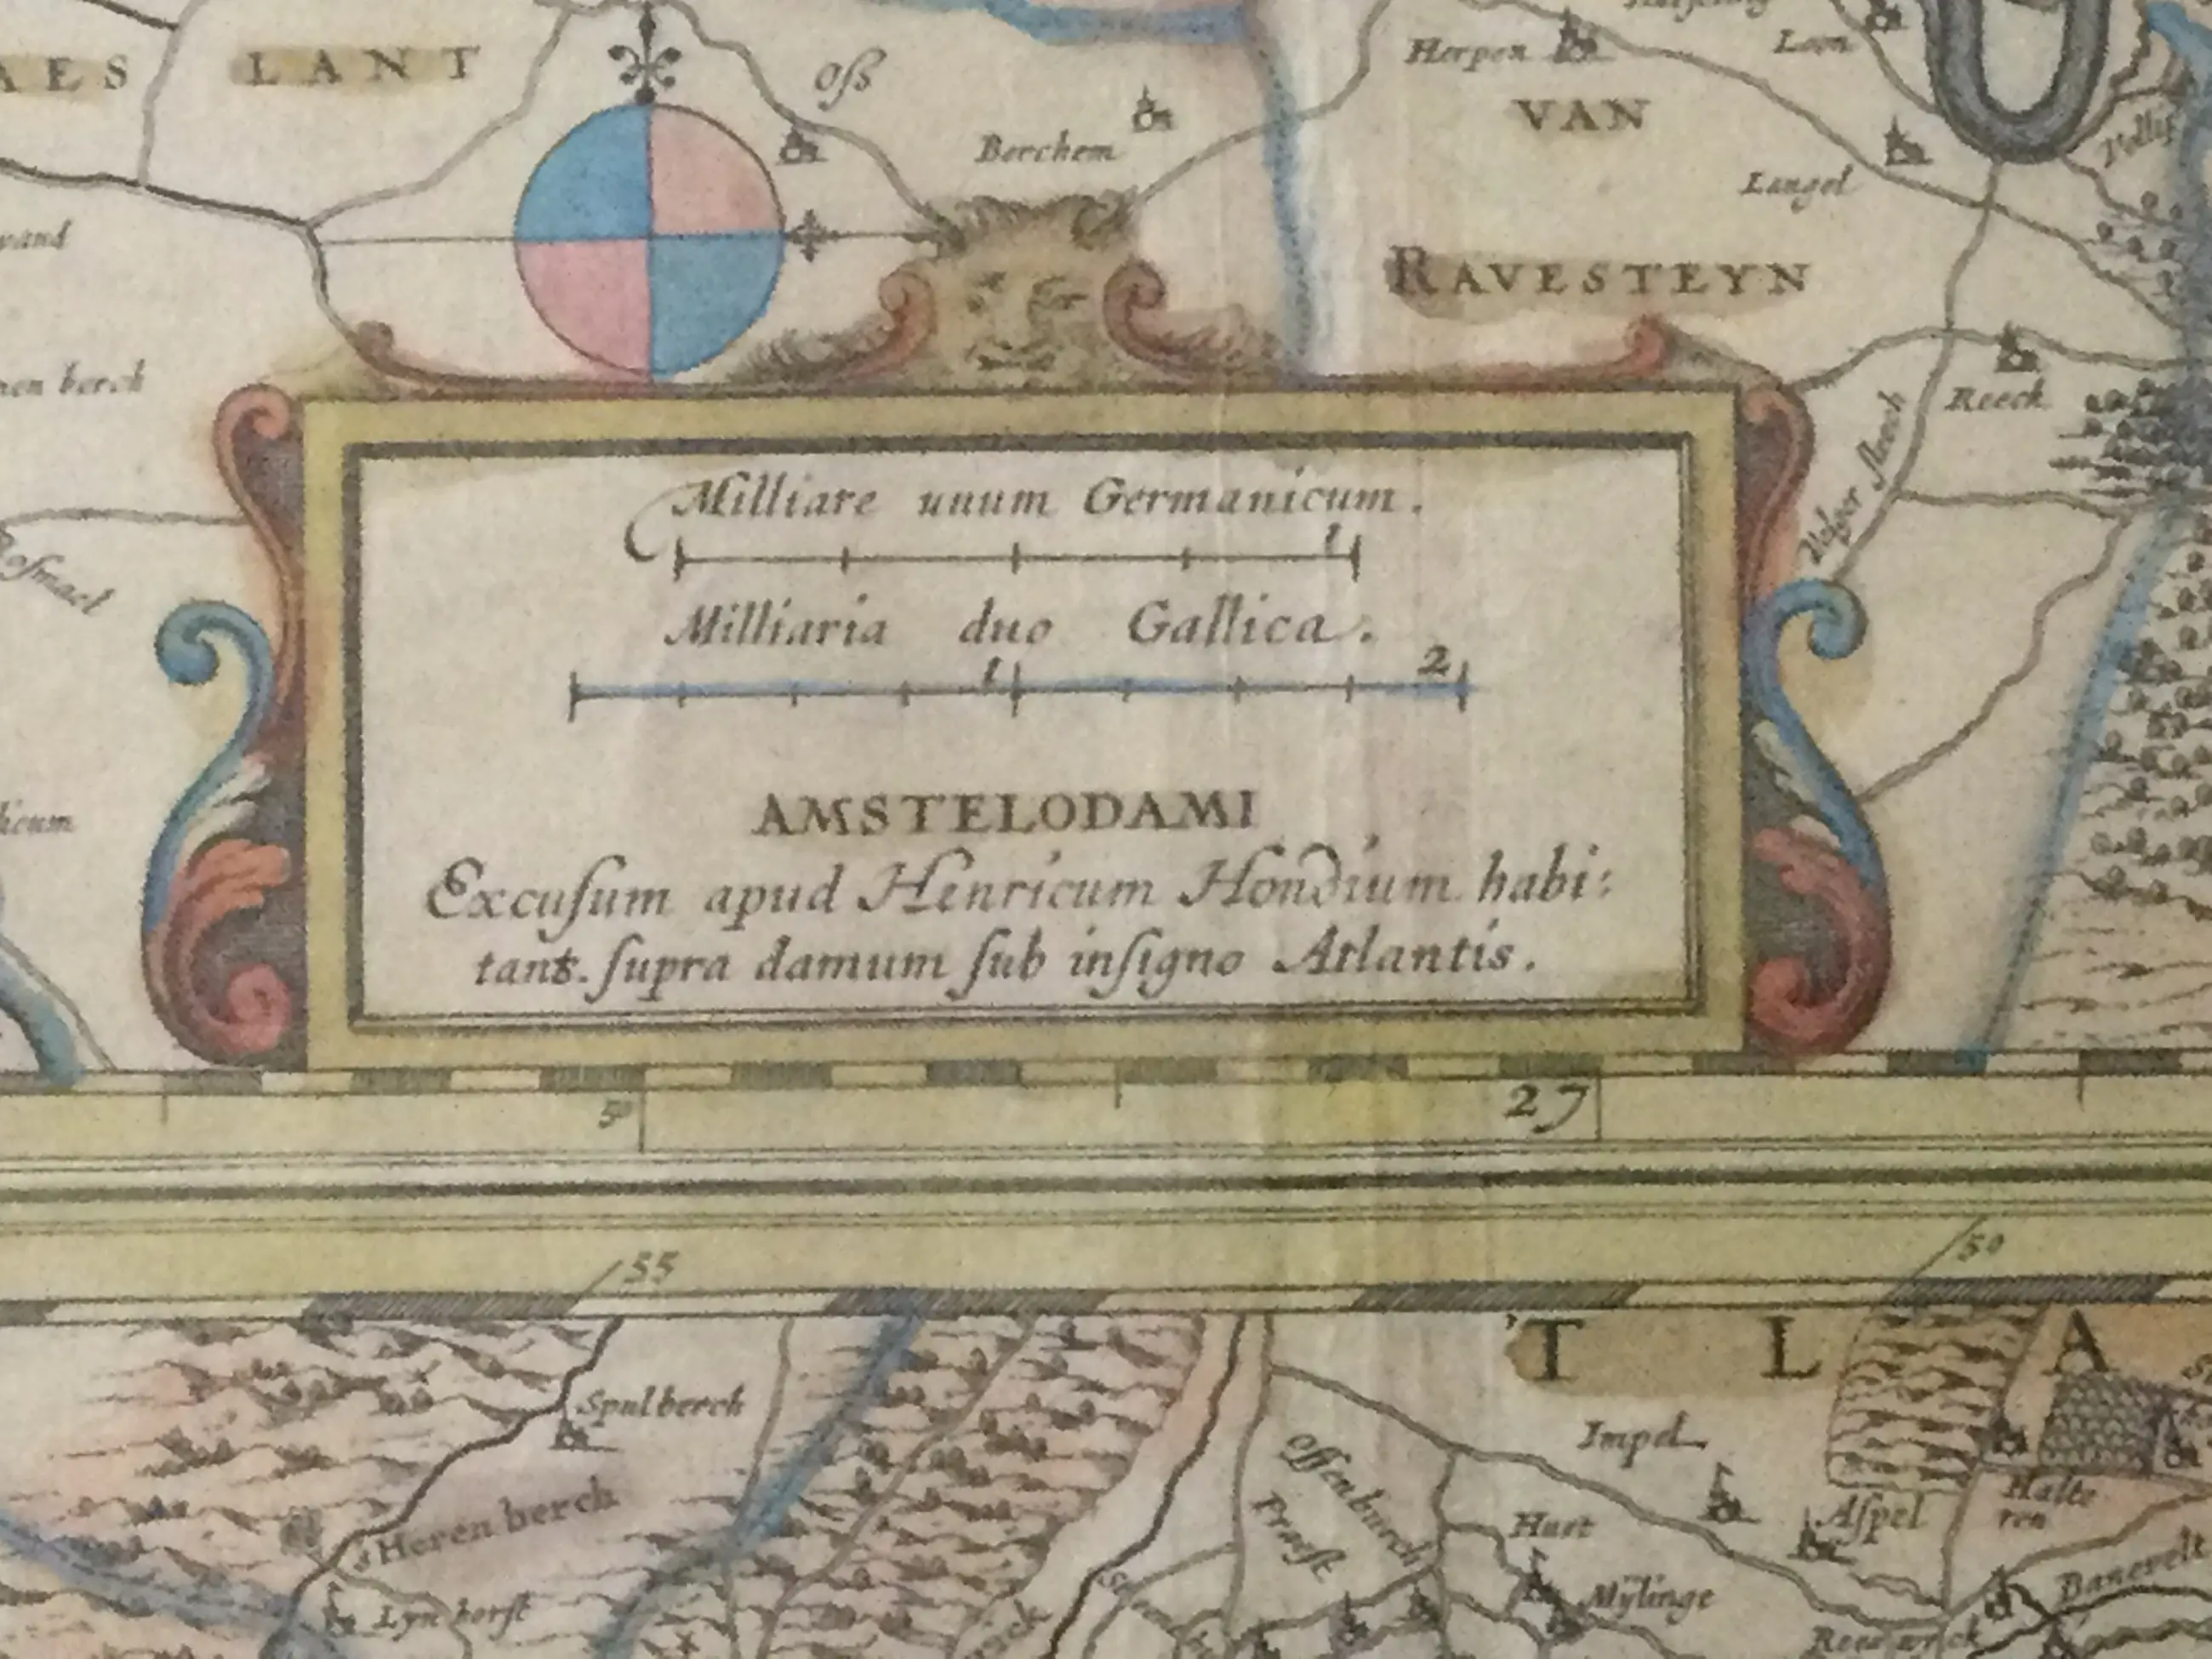 AES LANT
Oſs
Berchem
Herpen
Loon
VAN
Langel
RAVESTEYN
Reech
Milliare unum Germanicum.
1
Milliaria duo Gallica.
1 2
AMSTELODAMI
Excuſum apud Henricum Hondium habi:
tant. ſupra damum ſub inſigno Atlantis.
50 27
55 50
'T L A
Spalberch
Impel
Offenburch
Praeſt
Aſpel
Halde
ren
Huet
Herenberch
Mÿlinge
Lynhorſt